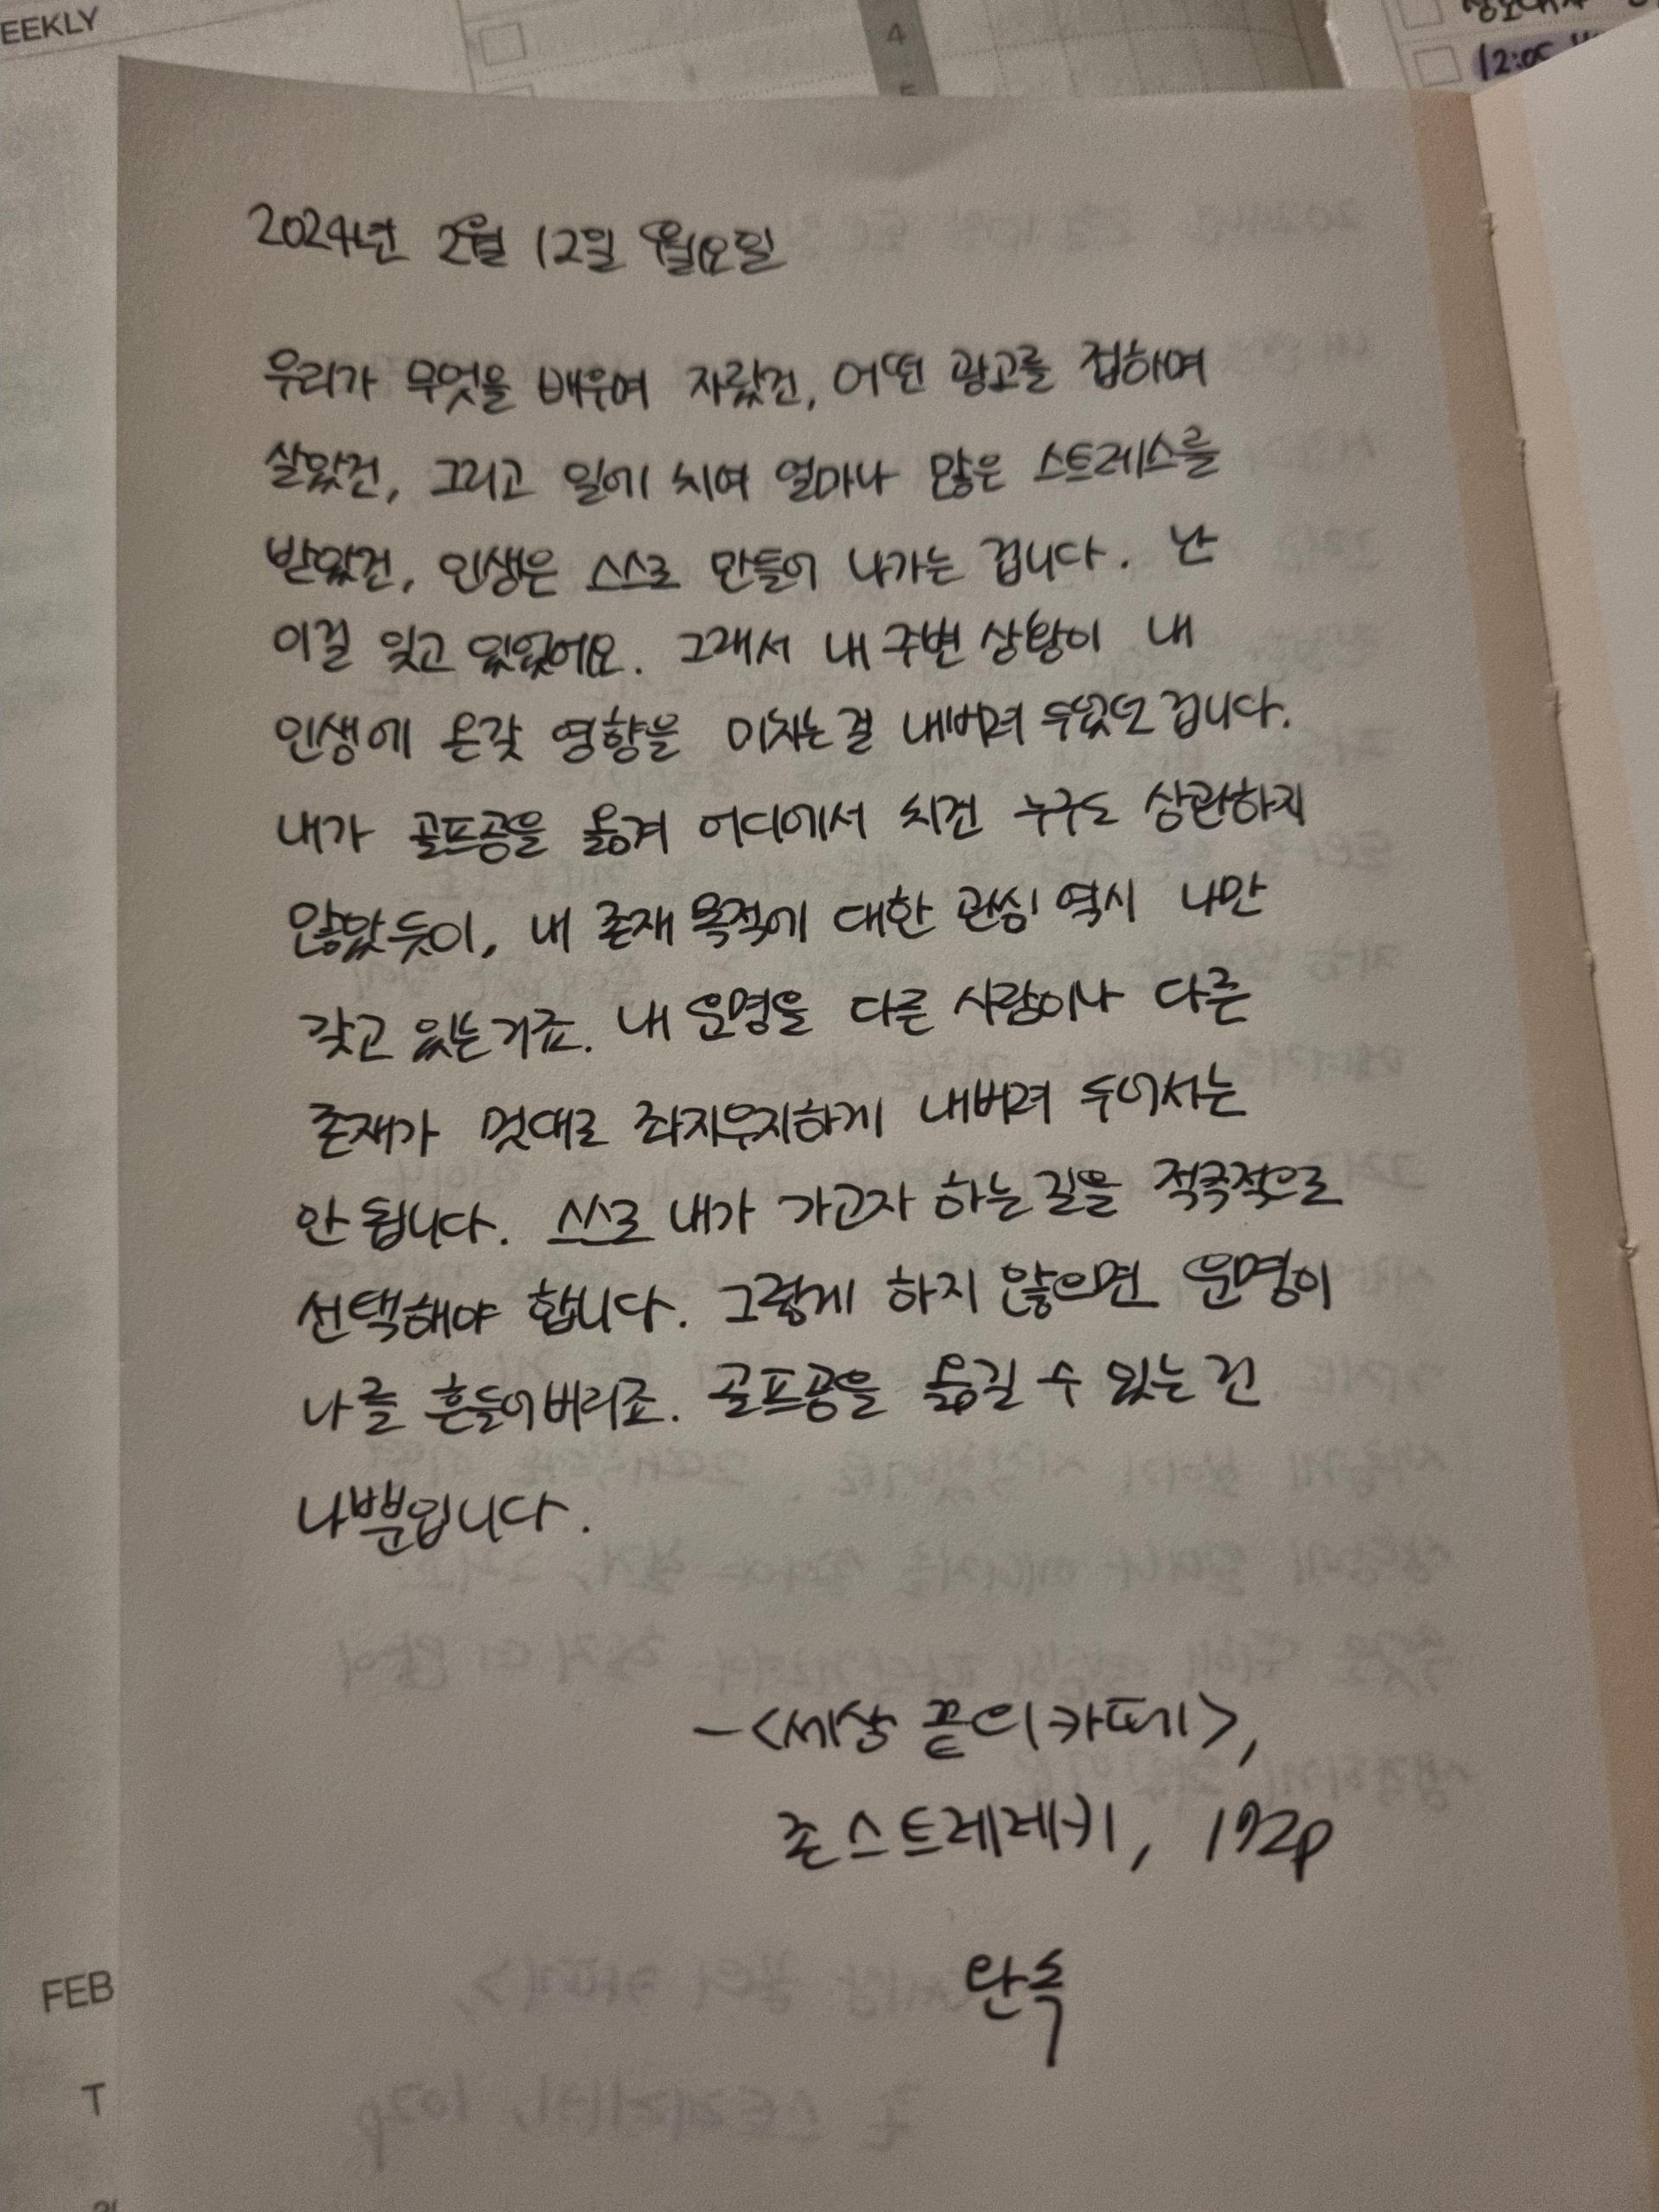 EEKLY
4
5
12:05
2024년 2월 12일 월요일
우리가 무엇을 배우며 자랐건, 어떤 광고를 접하며
살았건, 그리고 일에 치여 얼마나 많은 스트레스를
받았건, 인생은 스스로 만들어 나가는 겁니다. 난
이걸 잊고 있었어요. 그래서 내 주변 상황이 내
인생에 온갖 영향을 미치는걸 내버려 두었던 겁니다.
내가 골프공을 옮겨 어디에서 치건 누구도 상관하지
않았듯이, 내 존재 목적에 대한 관심 역시 나만
갖고 있는거죠. 내 운명을 다른 사람이나 다른
존재가 멋대로 좌지우지하게 내버려 두어서는
안 됩니다. 스스로 내가 가고자 하는길을 적극적으로
선택해야 합니다. 그렇게 하지 않으면 운명이
나를 흔들어버리죠. 골프공을 옮길 수 있는 건
나뿐입니다.
-<세상 끝의 카페>,
존 스트레레키, 192p
완독
FEB
T